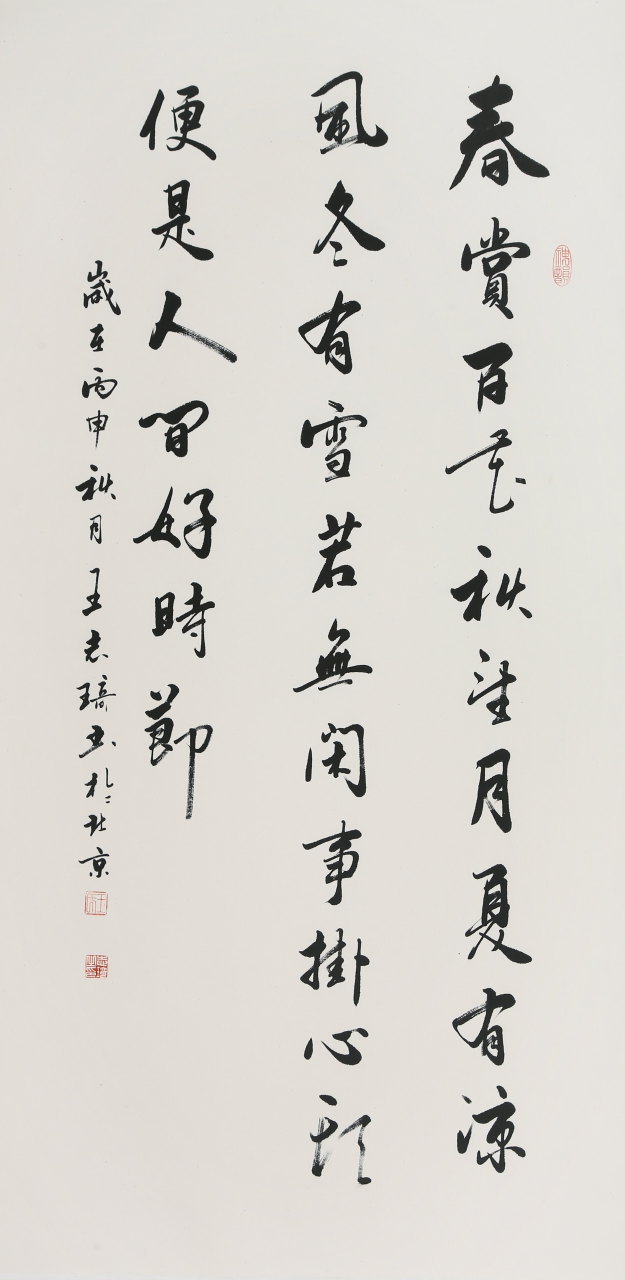 春賞百花秋望月夏有涼
風冬有雪若無閑事掛心頭
便是人間好時節
歲在丙申秋月王志琦书於北京